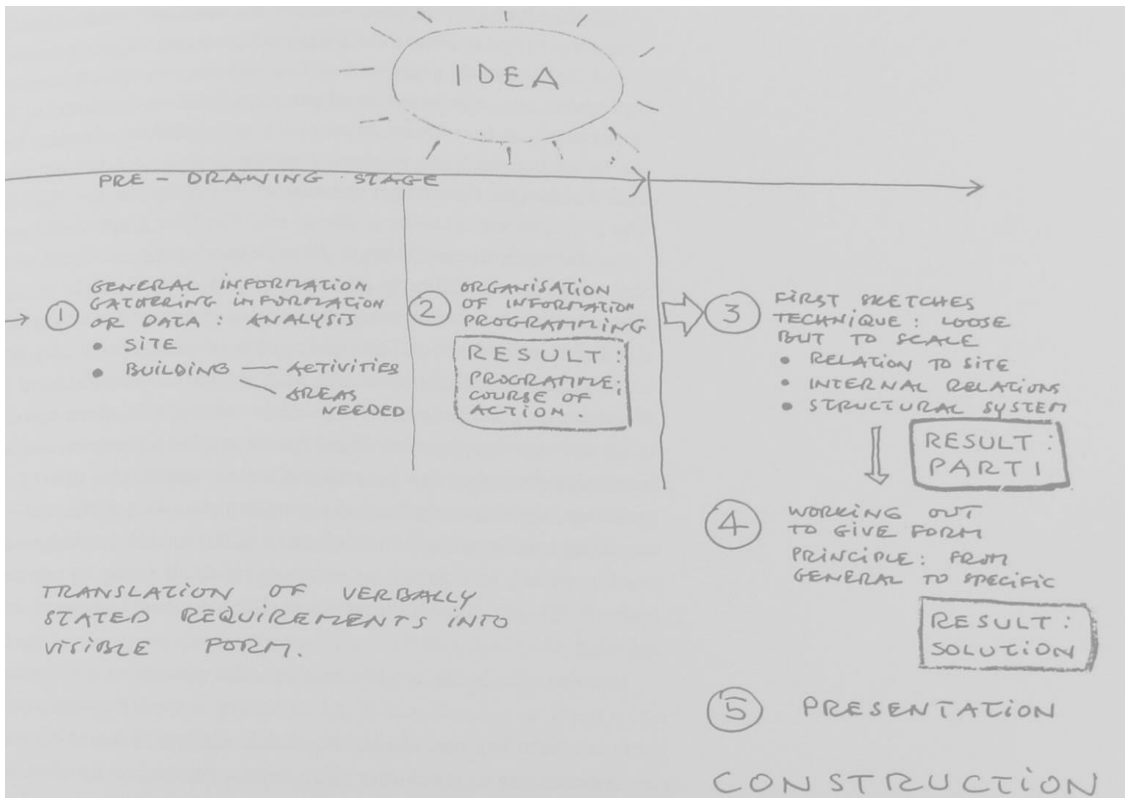 IDEA
PRE - DRAWING STAGE
1
GENERAL INFORMATION
GATHERING INFORMATION
OR DATA : ANALYSIS
• SITE
• BUILDING — ACTIVITIES
AREAS
NEEDED
2
ORGANISATION
OF INFORMATION
PROGRAMMING
RESULT :
PROGRAMME;
COURSE OF
ACTION.
3
FIRST SKETCHES
TECHNIQUE : LOOSE
BUT TO SCALE
• RELATION TO SITE
• INTERNAL RELATIONS
• STRUCTURAL SYSTEM
RESULT :
PARTI
4
WORKING OUT
TO GIVE FORM
PRINCIPLE: FROM
GENERAL TO SPECIFIC
RESULT :
SOLUTION
5 PRESENTATION
CONSTRUCTION
TRANSLATION OF VERBALLY
STATED REQUIREMENTS INTO
VISIBLE FORM.